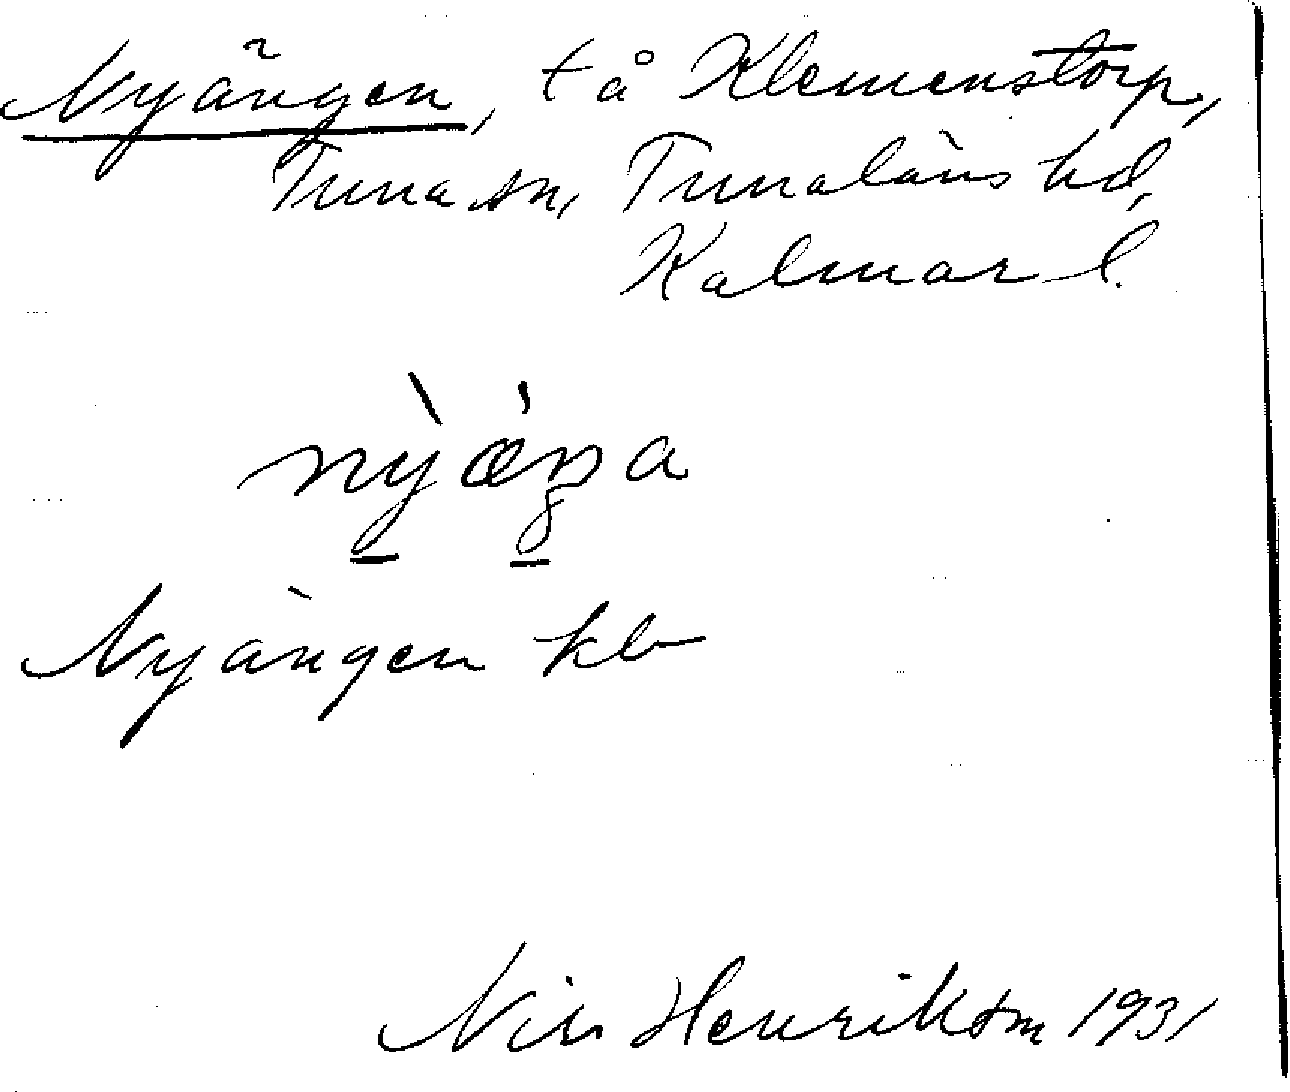 Nyängen, t å Klemenstorp,
Tuna sn, Tunaläns hd,
Kalmar l.
Nyängen kb
Nils Henriksson 1931